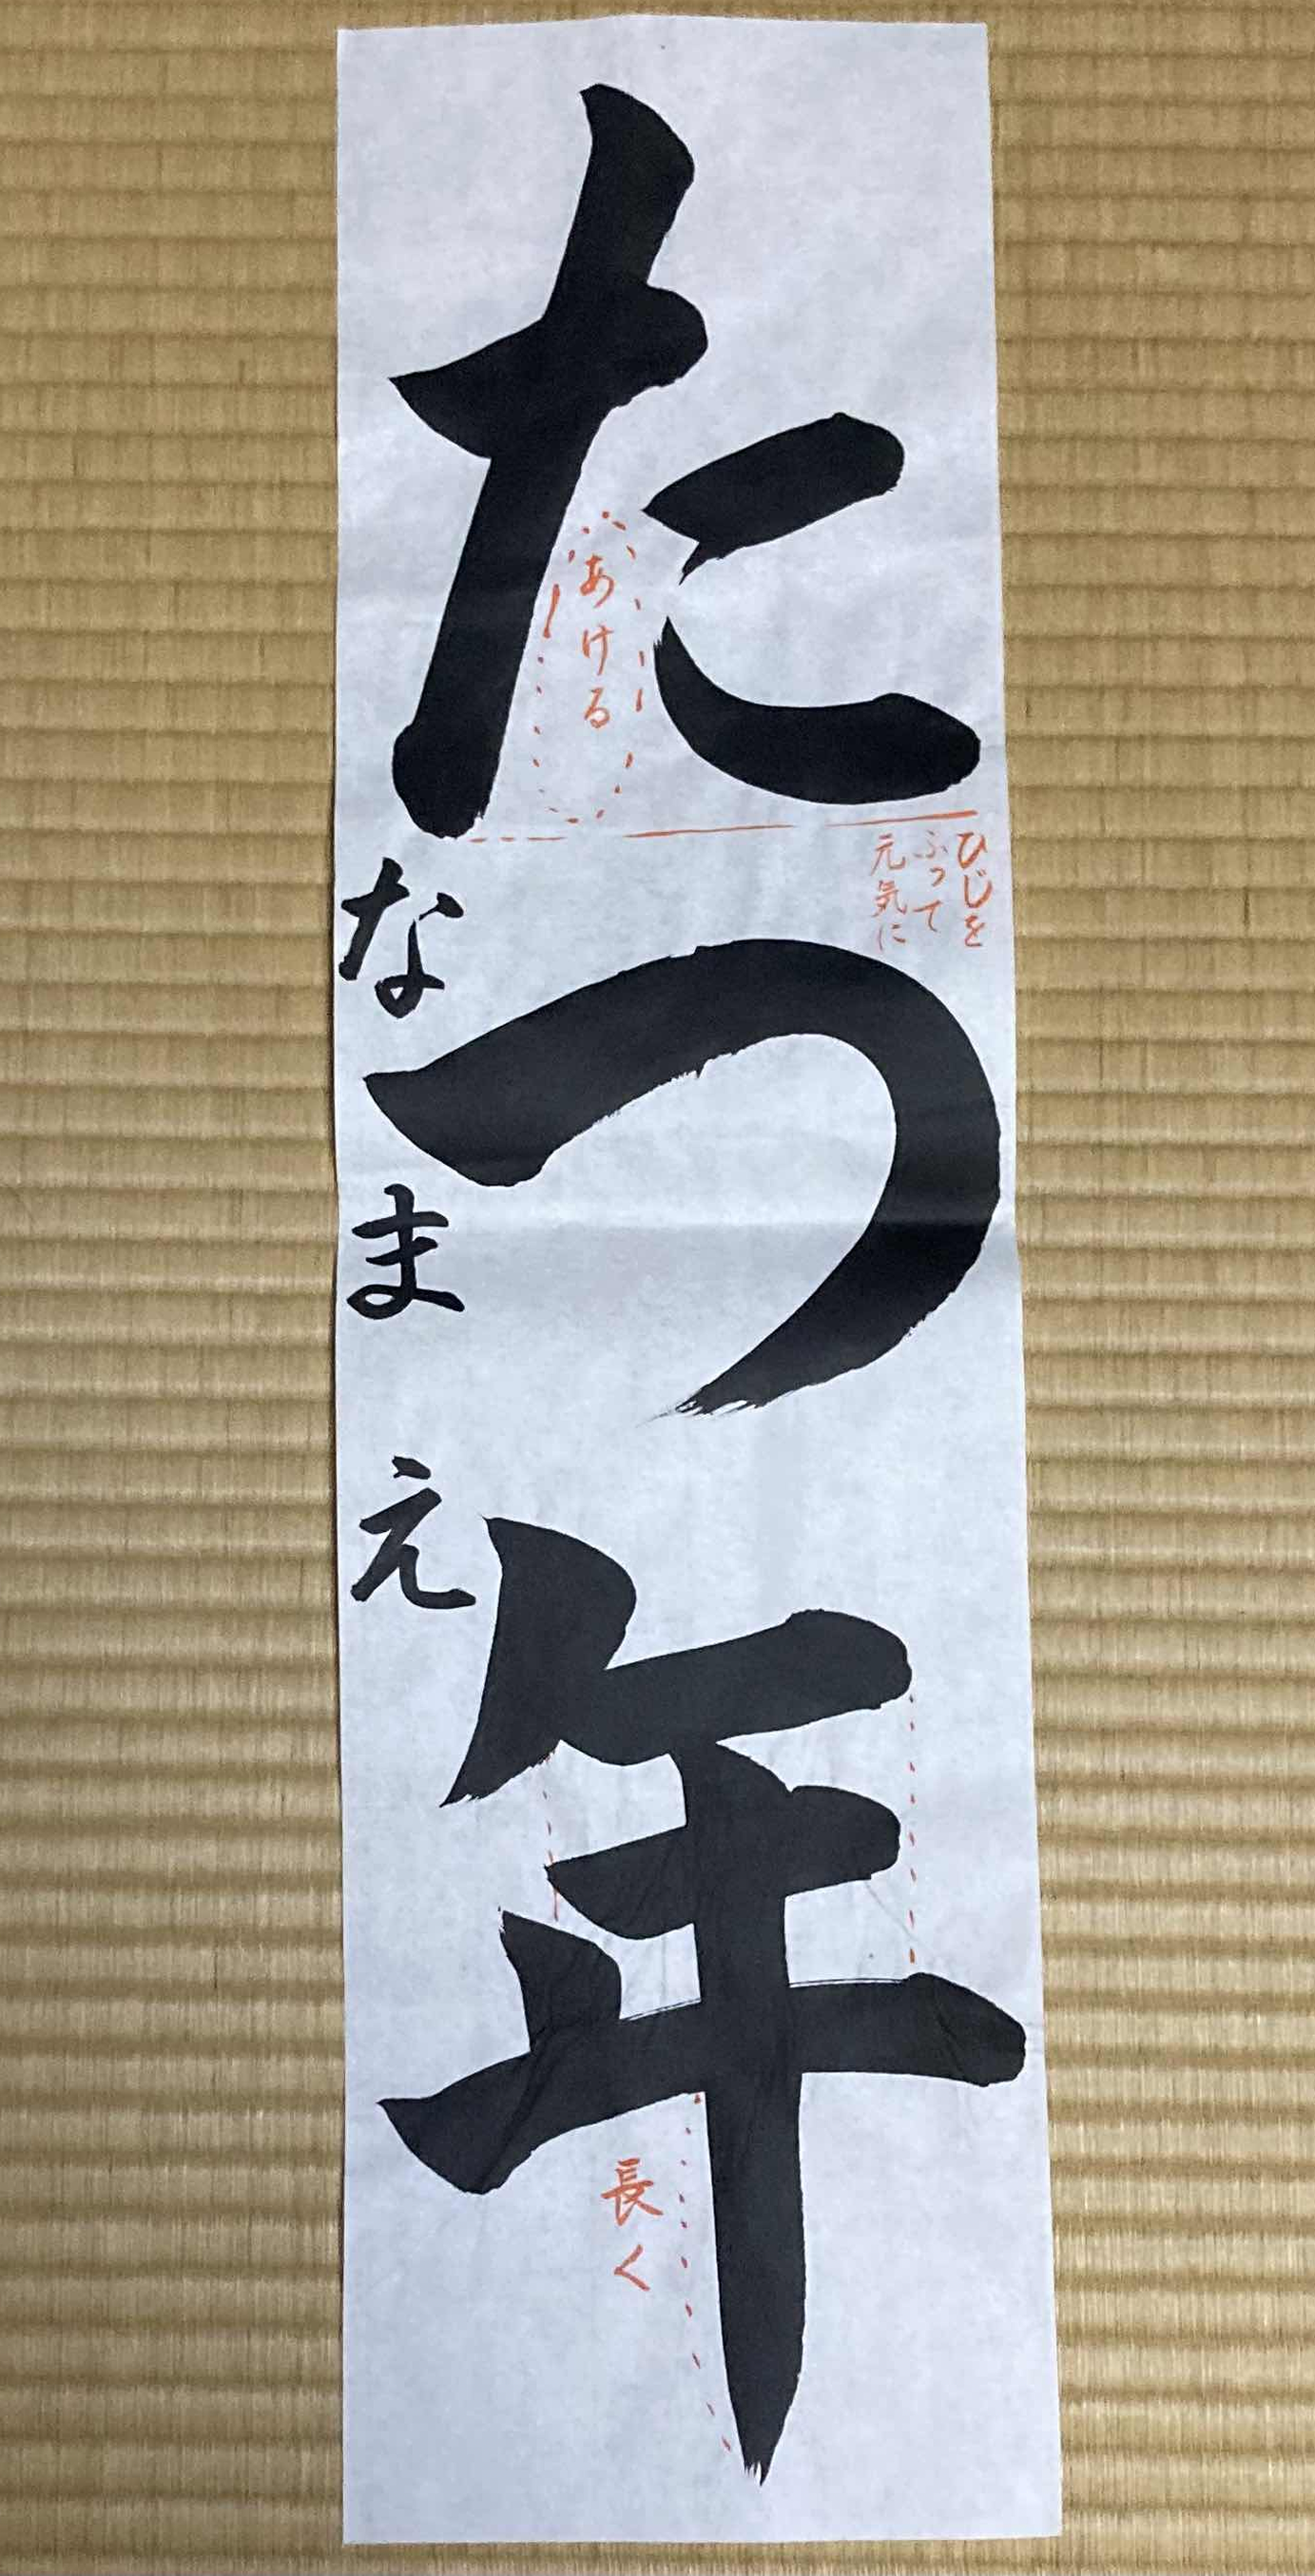 たつ年
なまえ
あける
ひじを
ふって
元気に
長く